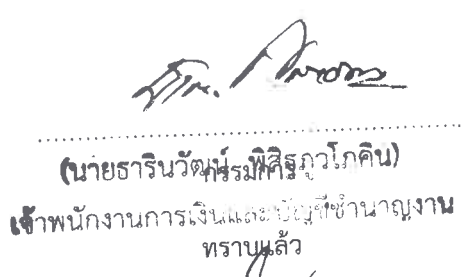 (นายธารินวัฒน์ พิสิฐภูวโภคิน)
กรรมการ
เจ้าพนักงานการเงินและบัญชีชำนาญงาน
ทราบแล้ว